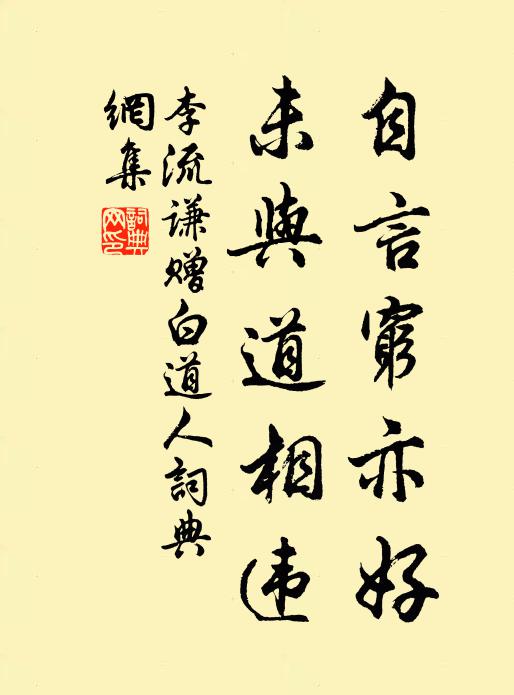 自言窮亦好
未與道相违
李流谦赠白道人詞典
網集
詞典
网印